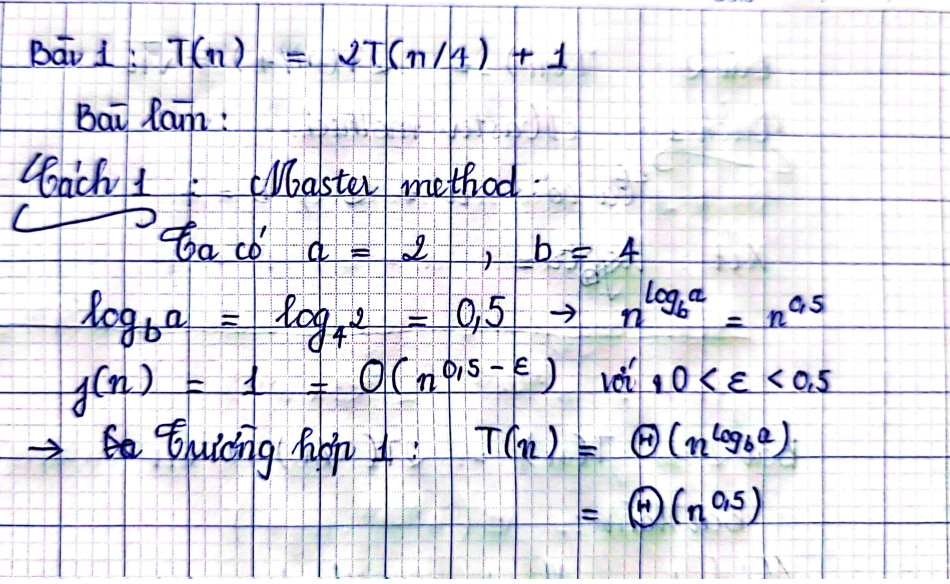 Bài 1 : T(n) = 2T(n/4) + 1
Bài làm :
Cách 1 : Master method.
Ta có a = 2 , b = 4
log_b a = log_4 2 = 0,5 → n^{log_b a} = n^{0,5}
f(n) = 1 = O(n^{0,5 - ε}) với 0 < ε < 0,5
→ Trường hợp 1 : T(n) = Θ(n^{log_b a}).
= Θ(n^{0,5})